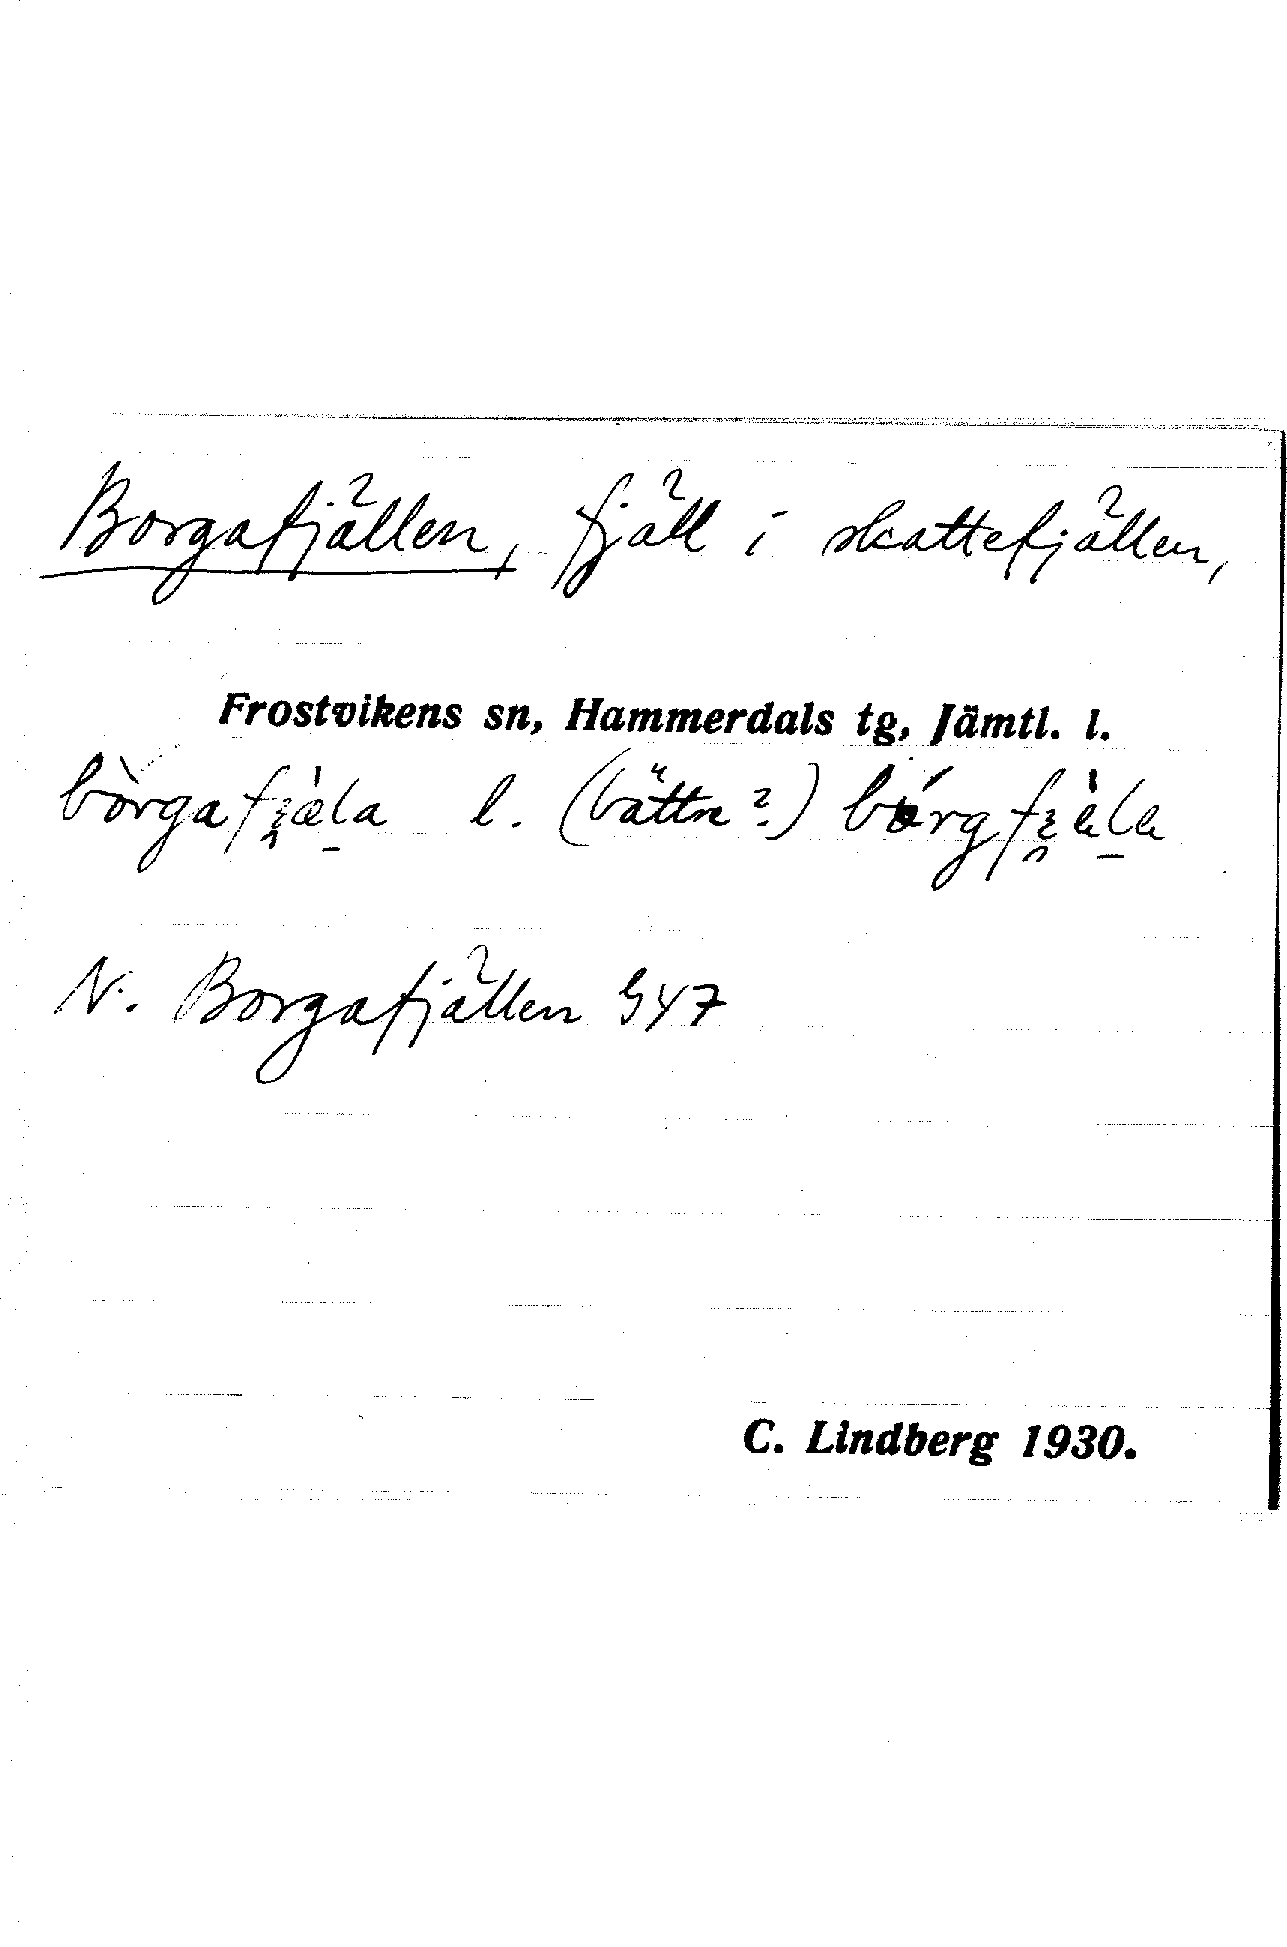 Borgafjällen, fjäll i skattefjällen,
Frostvikens sn, Hammerdals tg, Jämtl. l.
bòrgafi̯æ̀la l. (bättre?) bórgfi̯æ̀la
N. Borgafjällen G47
C. Lindberg 1930.